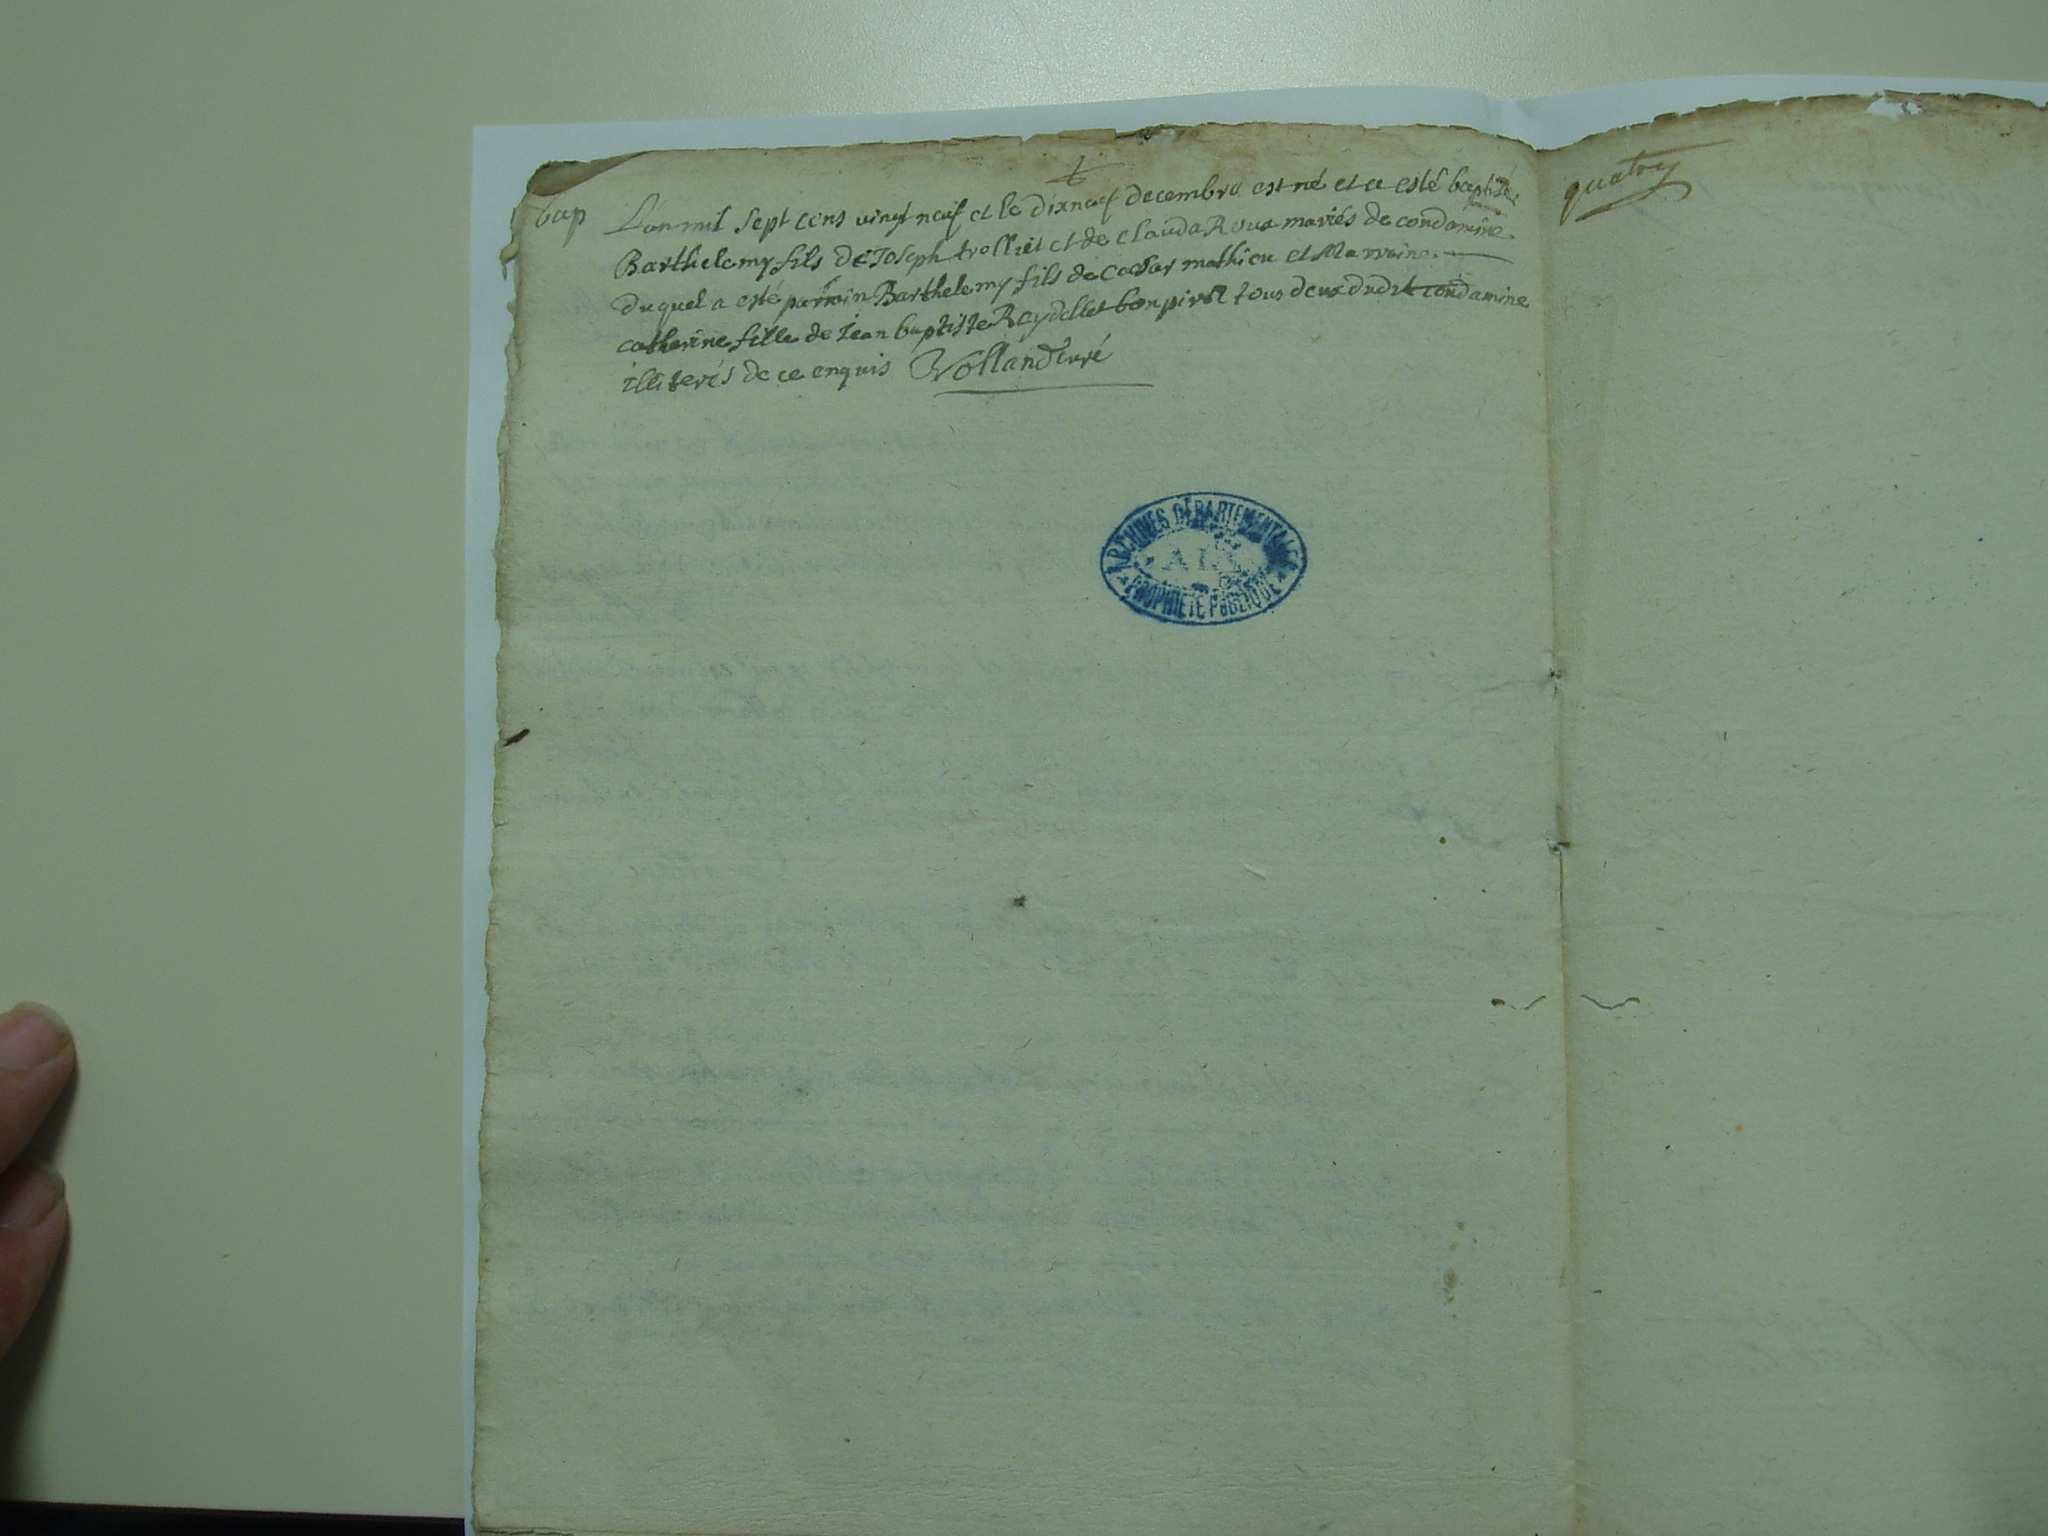 bap
L'an mil sept cens vingt neuf et le dixneuf decembre est né et a esté baptisé
Barthelemy fils de Joseph trolliet et de clauda Roux mariés de condamine
duquel a esté parrain Barthelemy fils de Cesar mathieu et Marraine
catherine fille de Jean baptiste Reydellet bonpivol tous deux dudit condamine
illiterés de ce enquis Volland curé
quatry
ARCHIVES DÉPARTEMENTALES
AIN
PROPRIÉTÉ PUBLIQUE